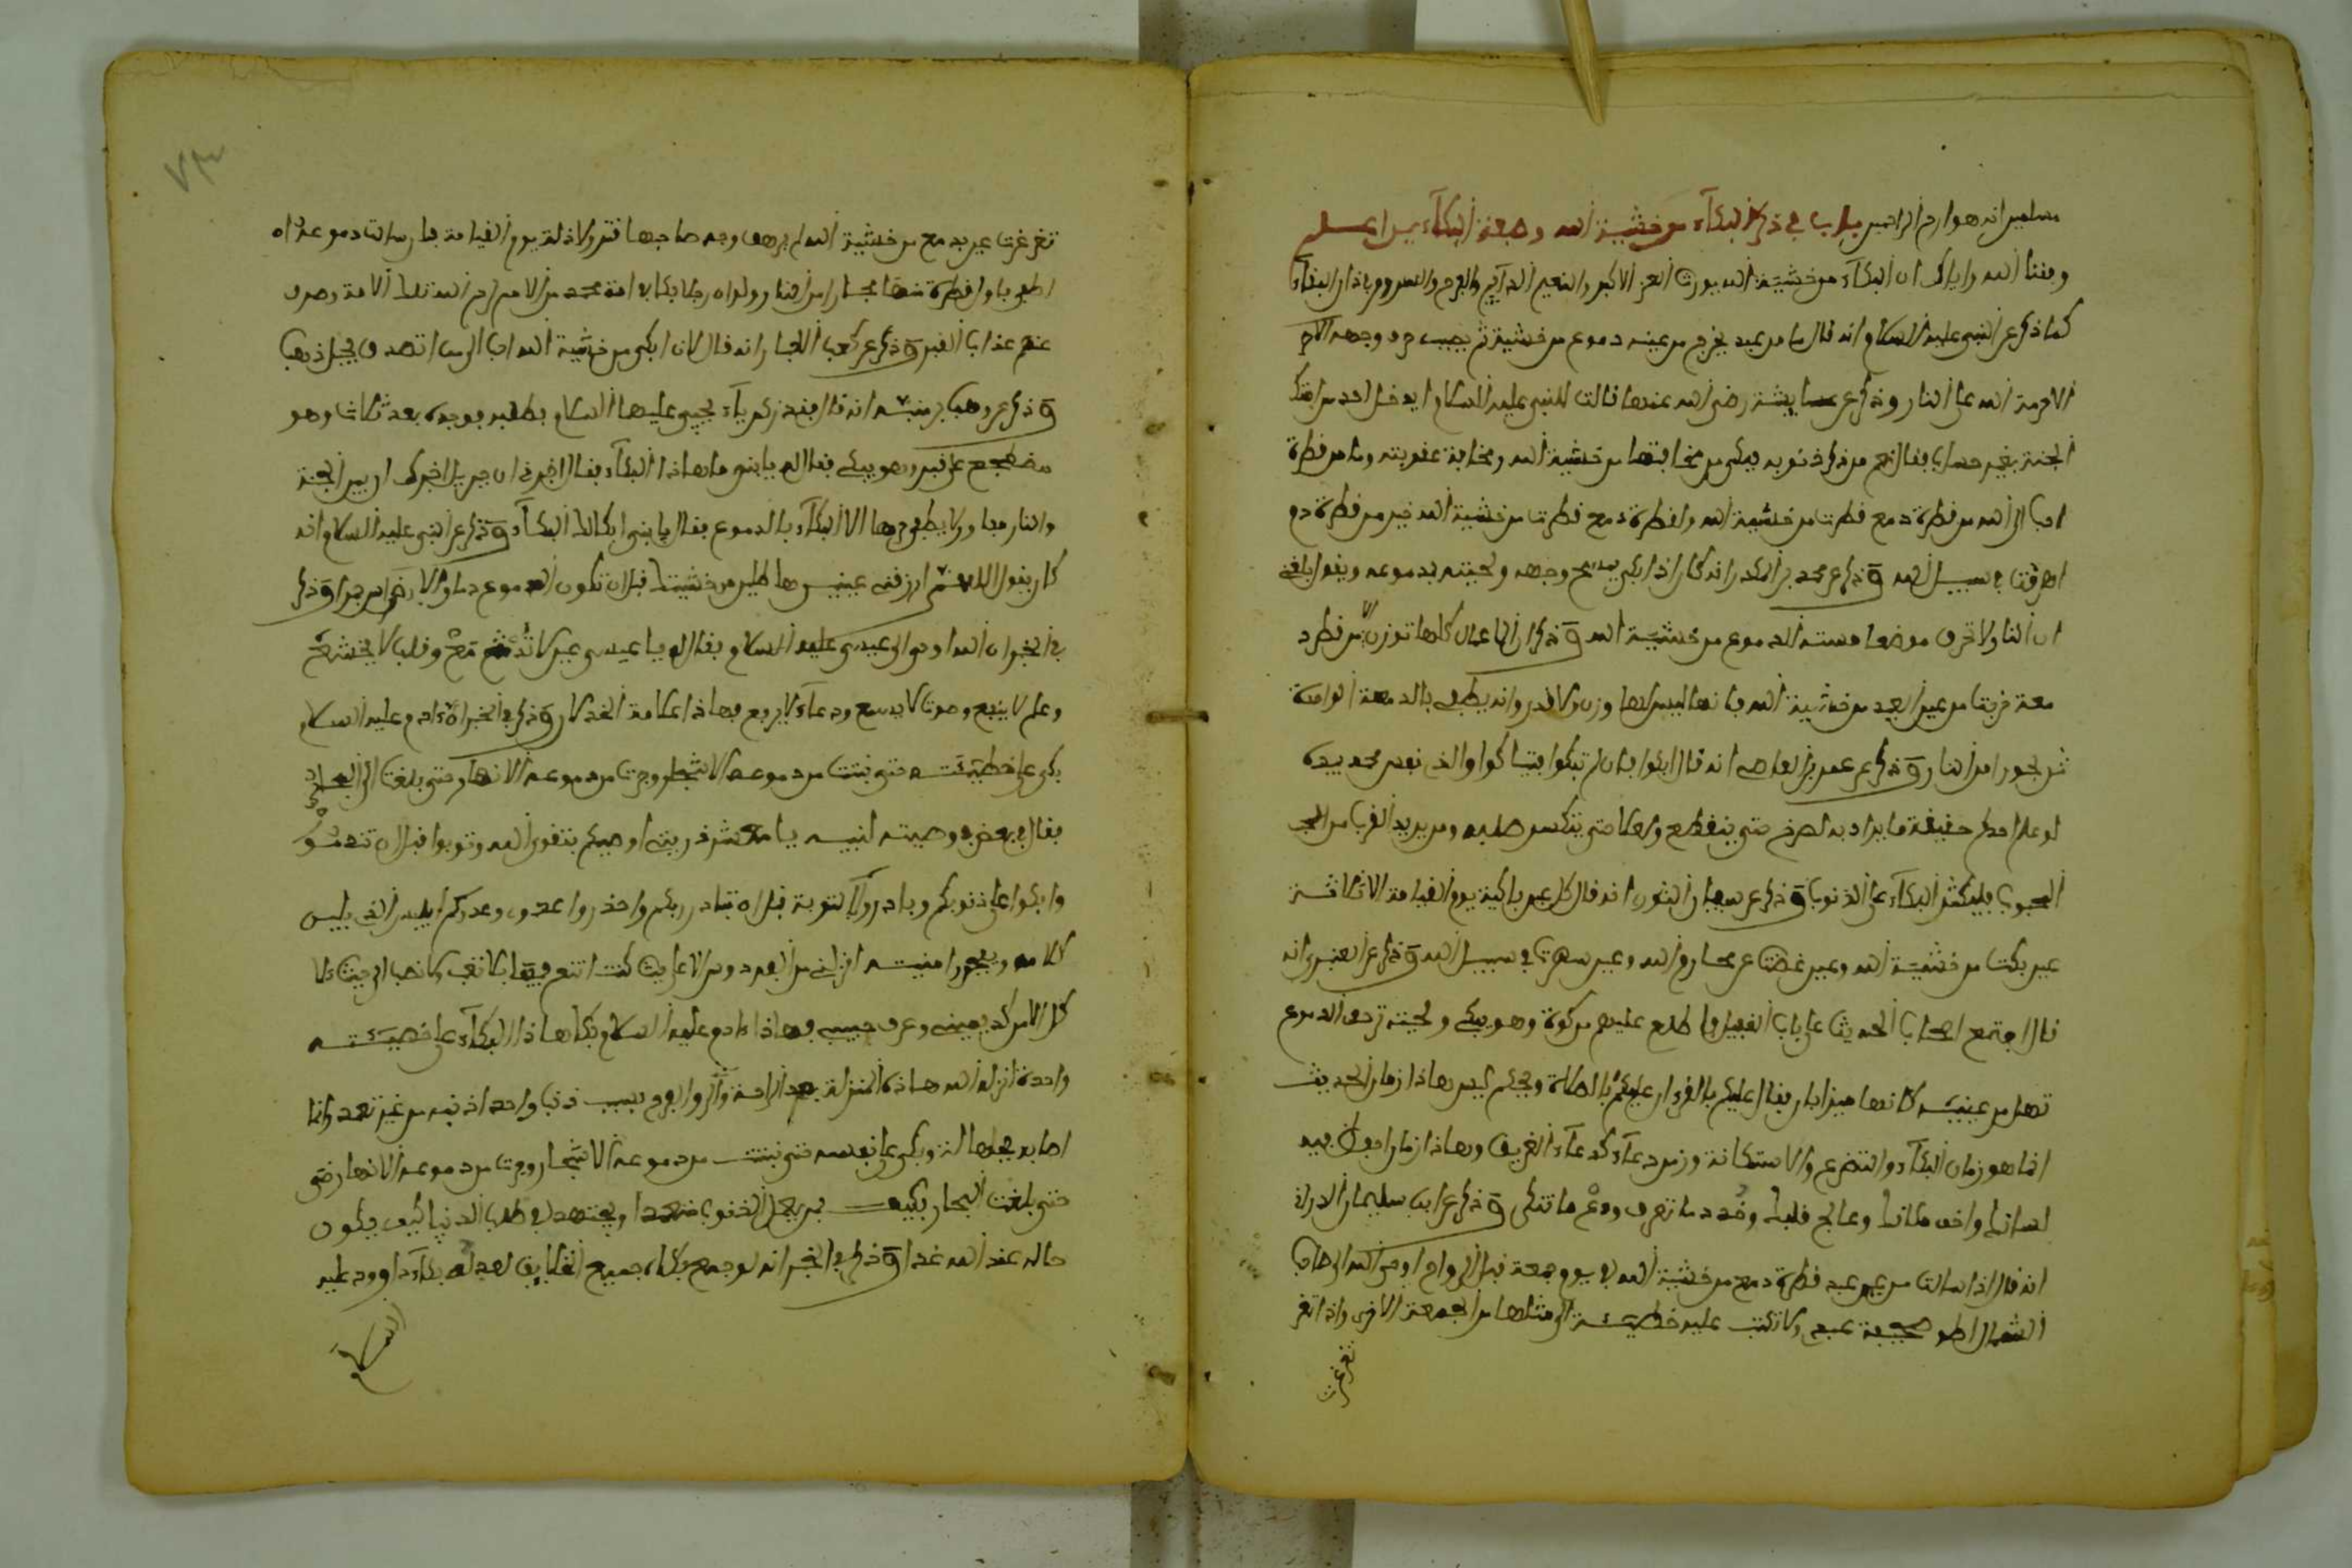 مسلمين انه هو ارحم الراحمين باب في ذكر البكاء من خشية الله وصفة البكاءين اعلم
وفقنا الله واياك ان البكاء من خشية الله يورث العز الاكبر والنعيم الدآيم والفرح والسرور في دار البقآء
كما ذكر عن النبي عليه السلام انه قال ما من عبد يخرج من عينه دموع من خشية ثم يصيب حر وجهه الا حر
الا حرمه الله على النار وذكر عن عايشة رضي الله عنها قالت للنبي عليه السلام ايدخل احد من امتك
الجنة بغير حساب فقال نعم من ذكر ذنوبه فبكى من مخافتها من خشية الله ومخافة عقوبته وما من قطرة
احب الى الله من قطرة دمع قطرت من خشية الله ولقطرة دمع قطرت من خشية الله خير من قطرة دم
اهرقت في سبيل الله وذكر عن محمد بن المنكدر انه كان اذا بكى يمسح وجهه ولحيته بدموعه ويقول بلغني
ان النار لا تحرق موضعا مسته الدموع من خشية الله وذكر ان الاعمال كلها توزن الا من قطرة د
معة خرجت من عين العبد من خشية الله فانها ليس لها وزن ولا قدر وانه يطفي بالدمعة الواحدة
بحورا من النار وذكر عن عمر بن العاص انه قال ابكوا فان لم تبكوا فتباكوا والذي نفسي بيده
لو علم احدكم حقيقة ما يراد به لصرخ حتى ينقطع وصلا حتى ينكسر صلبه ومن يريد القرب من المحبـ
المحبوب فليكثر البكاء على الذنوب وذكر عن سفيان الثوري انه قال كل عين باكية يوم القيامة الا ثلاثة
عين بكت من خشية الله وعين غضت عن محارم الله وعين سهرت في سبيل الله وذكر عن العنبري انه
قال اجتمع اصحاب الحديث على باب الفضيل فاطلع عليهم من كوة وهو يبكي ولحيته ترجف الدموع
تهل من عينيه كانها ميزابان فقال عليكم بالقرءان عليكم بالصلاة ويحكم ليس هذا زمان الحديث
انما هو زمان البكاء والتضرع والاستكانة وزمن دعاء كدعاء الغريق وهذا زمان احفظ فيه
لسانك واخف مكانك وعالج قلبك وخذ ما تعرف ودع ما تنكر وذكر عن ابي سليمان الدراني
انه قال اذا سالت من عين عبد قطرة دمع من خشية الله في يوم جمعة قبل الرواح اوحى الله الى صاحب
الشمال اطو صحيفة عبدي ولا تكتب عليه خطيئة الى مثلها من الجمعة الاخرى واذا تغر
تغرغرت
٧٣
تغرغرت عين بدمع من خشية الله لم يرهق وجه صاحبها قتر ولا ذلة يوم القيامة فان سالت دموعه
اطفى باول قطرة منها بحارا من النار ولو ان رجلا بكى في امة محمد من الامم لرحم الله تلك الامة وصرف
عنهم عذاب القبر وذكر عن كعب الاحبار انه قال لان ابكي من خشية الله احب الي من ان اتصدق بجبل ذهب
وذكر عن وهب بن منبه انه قال فقد زكرياء يحيى عليهما السلام فطلبه فوجده بعد ثلاث وهو
مضطجع على قبر وهو يبكي فقال له يا بني ما هاذا البكاء فقال اخبرتني ان جبريل اخبرك ان بين الجنة
والنار مفازة لا يطفي حرها الا البكاء بالدموع فقال يا بني ابك البكاء وذكر عن النبي عليه السلام انه
كان يقول اللهم ارزقني عينين هاطلتين من خشيتك قبل ان تكون الدموع دما والاضراس جمرا وذكر
في الخبر ان الله اوحى الى عيسى عليه السلام فقال له يا عيسى عين لا تدمع وقلب لا يخشع
وعلم لا ينفع وصوت لا يسمع ودعاء لا يرفع فهاذا علامة الخذلان وذكر في الخبر ان ءادم عليه السلام
بكى على خطيئته حتى نبتت من دموعه الاشجار وجرت من دموعه الانهار حتى بلغت الى البحار
فقال في بعض وصيته لبنيه يا معشر ذريتي اوصيكم بتقوى الله وتوبوا قبل ان تندموا
وابكوا على ذنوبكم وبادروا التوبة قبل ان تبادر ربكم واحذروا عدوي وعدوكم ابليس الذي
كلامه وبغروره امنيته انزلني من الفردوس الاعلى حيث كنت اتنعم فيها بلا تعب ولا نصب الى حيث لا
كل الا من كد يميني وعرق جبيني فهاذا ءادم عليه السلام بكى هاذا البكاء على خطيئته
واحدة انزله الله هاذه المنزلة بعد الراحة والروح والفرح بسبب ذنب واحد اذنبه من غير تعمد وانما
اصابه بجهالة وبكى على نفسه حتى نبتت من دموعه الاشجار وجرت من دموعه الانهار حتى
حتى بلغت البحار فكيف بمن يعمل الذنوب متعمدا ويجتهد في طلب الدنيا كيف يكون
حاله عند الله غدا وذكر في الخبر انه لو جمع بكاء جميع الخلايق لعدله بكاء داوود عليه
السلام